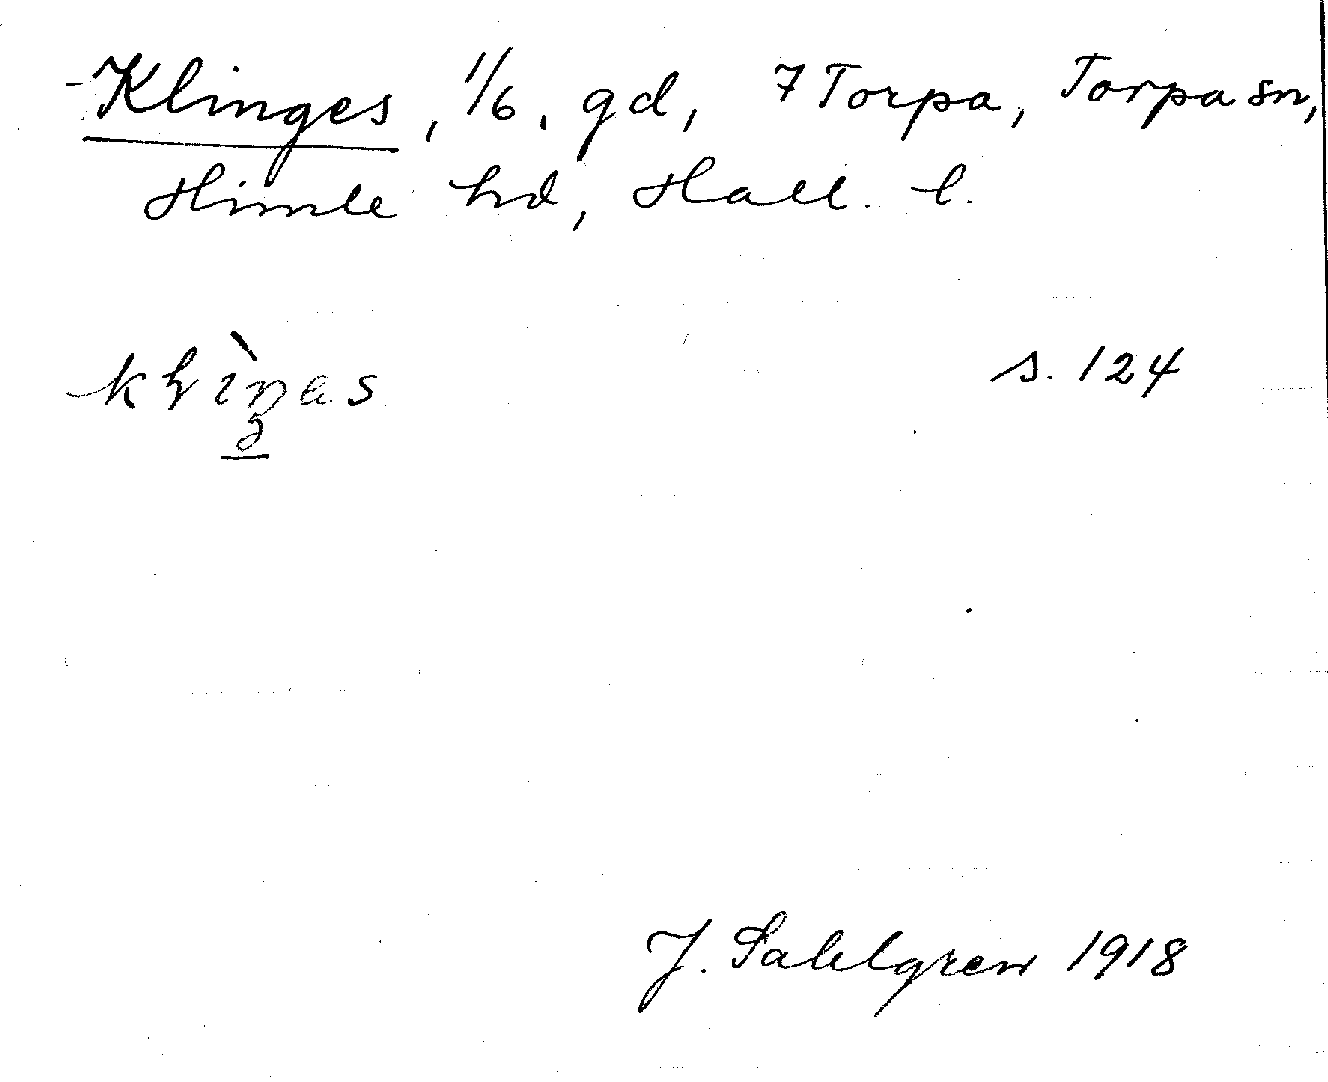 -Klinges, 1/6. gd, 7 Torpa, Torpa sn,
Himle hd, Hall. l.
s. 124
J. Sahlgren 1918